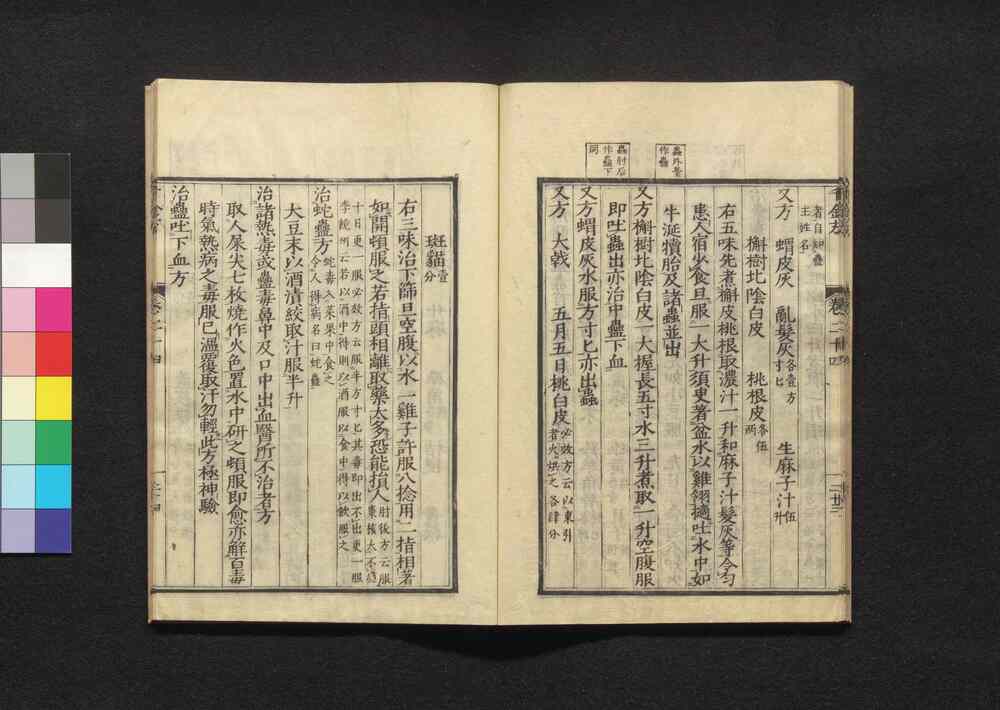 蠱外臺
作蠱
蟲肘后
作蠱下
同
者自知蠱
主姓名
又方　蝟皮灰　亂髮灰各壹方寸匕　生麻子汁伍升
槲樹北陰白皮　桃根皮各伍兩
右五味先煮槲皮桃根取濃汁一升和麻子汁髮灰等令勻
患人宿少食旦服一大升須臾著盆水以雞翎擿吐水中如
牛涎犢胎及諸蠱並出
又方槲樹北陰白皮一大握長五寸水三升煮取一升空腹服
即吐蟲出亦治中蠱下血
又方蝟皮灰水服方寸匕亦出蠱
又方　大戟　五月五日桃白皮必效方云以東引者火烘之各肆分
斑貓壹分
右三味治下篩旦空腹以水一雞子許服八捻用二指相著
如開頓服之若指頭相離取藥太多恐能損人肘後方云服棗核太不差
十日更一服必效方云服半方寸匕其毒即出不出更一服
李饒州云若以酒中得則以酒服以食中得以飲服之
治蛇蠱方蛇毒入菜果中食之令人得病名曰蛇蠱
大豆末以酒漬絞取汁服半升
治諸熱毒或蠱毒鼻中及口中出血醫所不治者方
取人屎尖七枚燒作火色置水中研之頓服即愈亦解百毒
時氣熱病之毒服已溫覆取汗勿輕此方極神驗
治蠱吐下血方